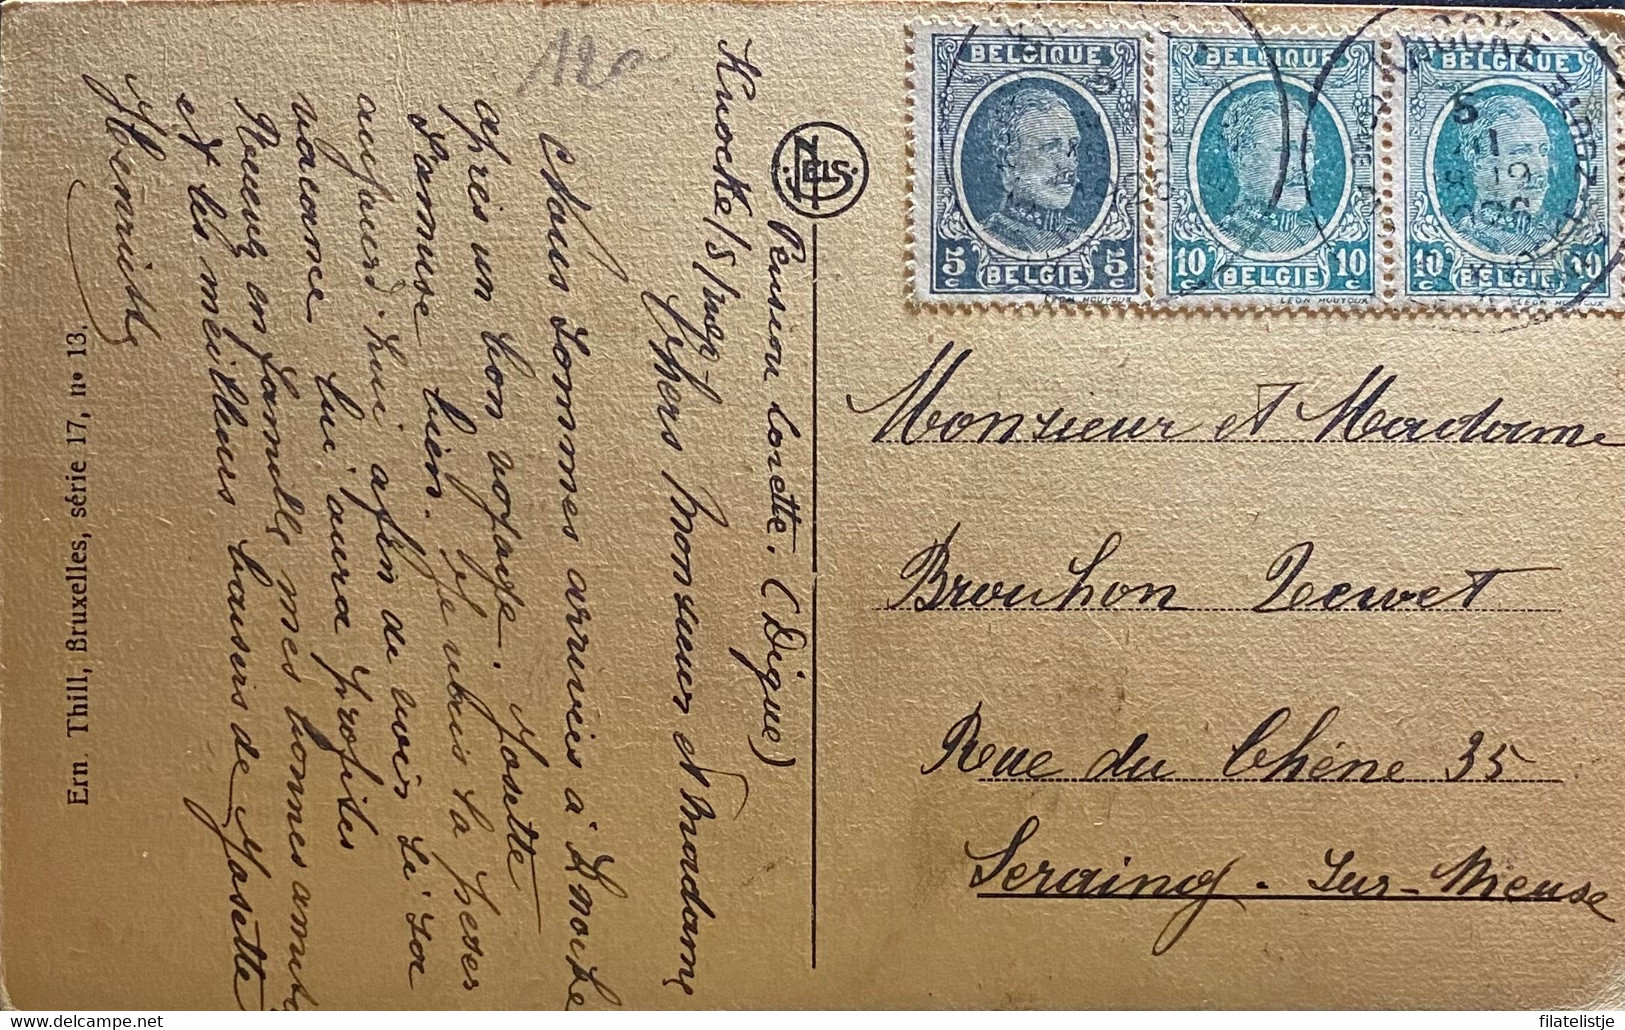 12
Pension Lorette. (Digue)
Knocke, 5/
Chers Monsieur et Madame
Nous sommes arrivées à Knocke
après un bon voyage. Josette
s'amuse bien. Je
aujourd'hui afin de voir si sa
vacane lui aura profités
Recevez en famille mes bonnes amitiés
et les meilleurs baisers de Josette
Henriette
Ern. Thill, Bruxelles, série 17, no 13.
NELS
BELGIQUE
5c BELGIE 5c
LÉON HOUYOUX
BELGIQUE
10c BELGIE 10c
LÉON HOUYOUX
BELGIQUE
10c BELGIE 10c
LÉON HOUYOUX
KNOCKE
Monsieur et Madame
Brouhon
Rue du Chêne 35
Seraing - Sur-Meuse
filatelistje @ Delcampe.net